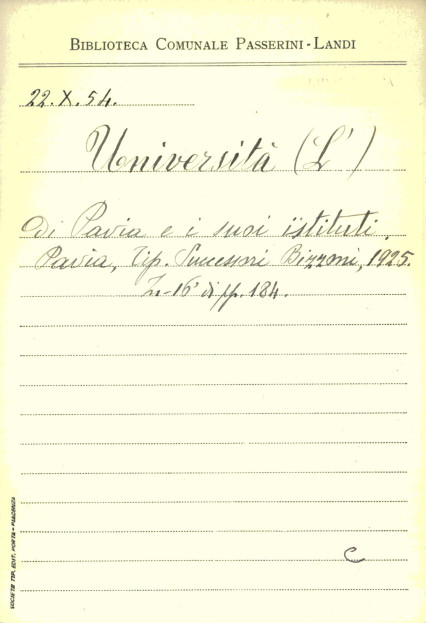 BIBLIOTECA COMUNALE PASSERINI-LANDI
22.X.54.
Università (L')
di Pavia e i suoi istituti.
Pavia, Tip. Successori Bizzoni, 1925.
In-16° di pp. 184.
C
SOCIETÀ TIP. EDIT. PORTA - PIACENZA